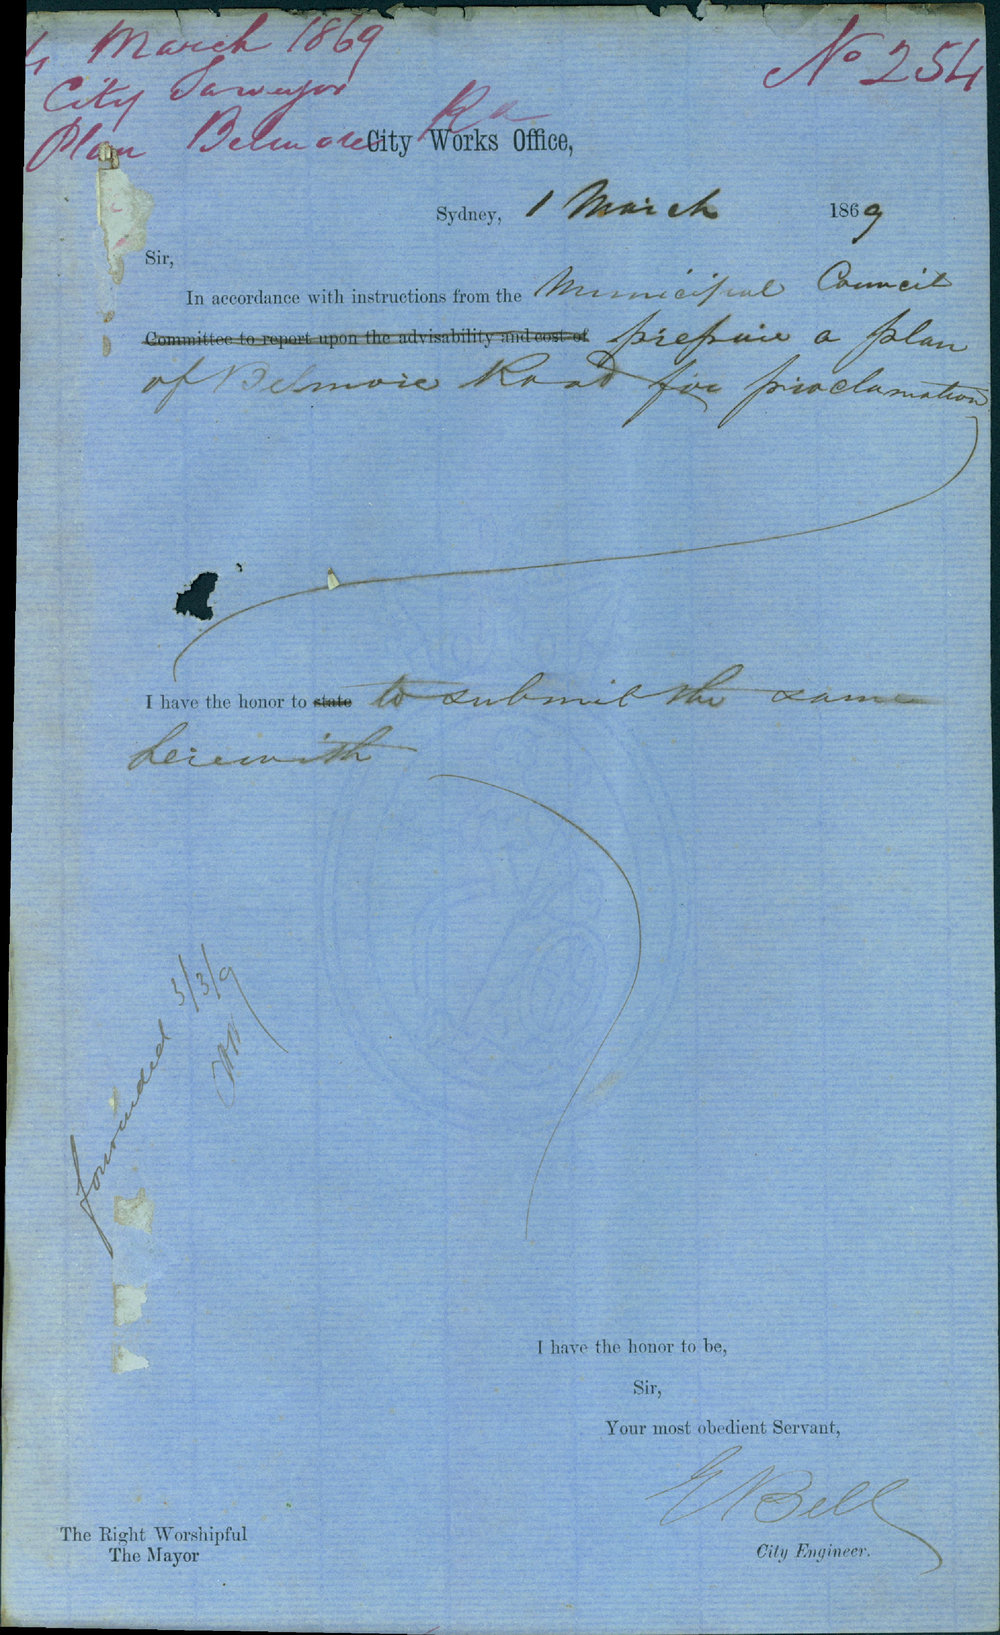 4 March 1869
No 254
City Surveyor
Plan Belmore Rd
City Works Office,
Sydney, 1 March 1869
Sir,
In accordance with instructions from the Municipal Council
Committee to report upon the advisability and cost of prepare a plan
of Belmore Road for proclamation
I have the honor to state to submit the same
herewith
forwarded 3/3/9
I have the honor to be,
Sir,
Your most obedient Servant,
E Bell
City Engineer.
The Right Worshipful
The Mayor